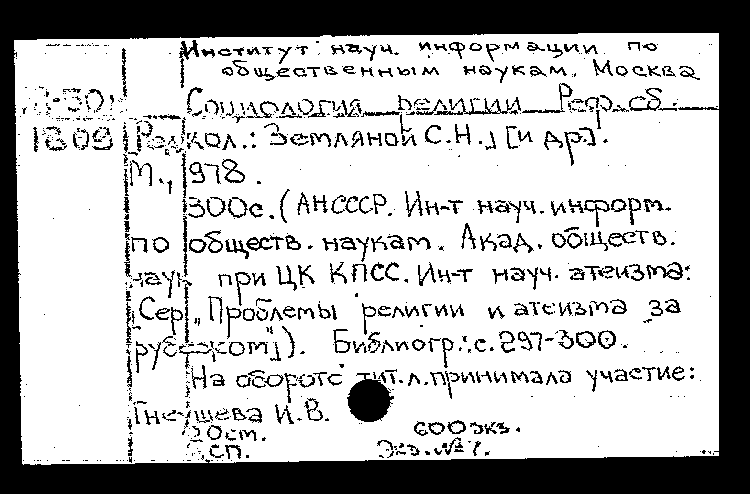 Институт науч. информации по
общественным наукам. Москва
Социология религии Реф.сб.
1809 Редкол.: Земляной С.Н., [и др.].
М., 1978.
300с. (АН СССР. Ин-т науч. информ.
по обществ. наукам. Акад. обществ.
наук при ЦК КПСС. Ин-т науч. атеизма:
Сер. „Проблемы религии и атеизма за
рубежом"). Библиогр.: с. 297-300.
На обороте тит. л. принимала участие:
Гнеушева И.В.
20ст. 600экз.
сп. Экз. №7.